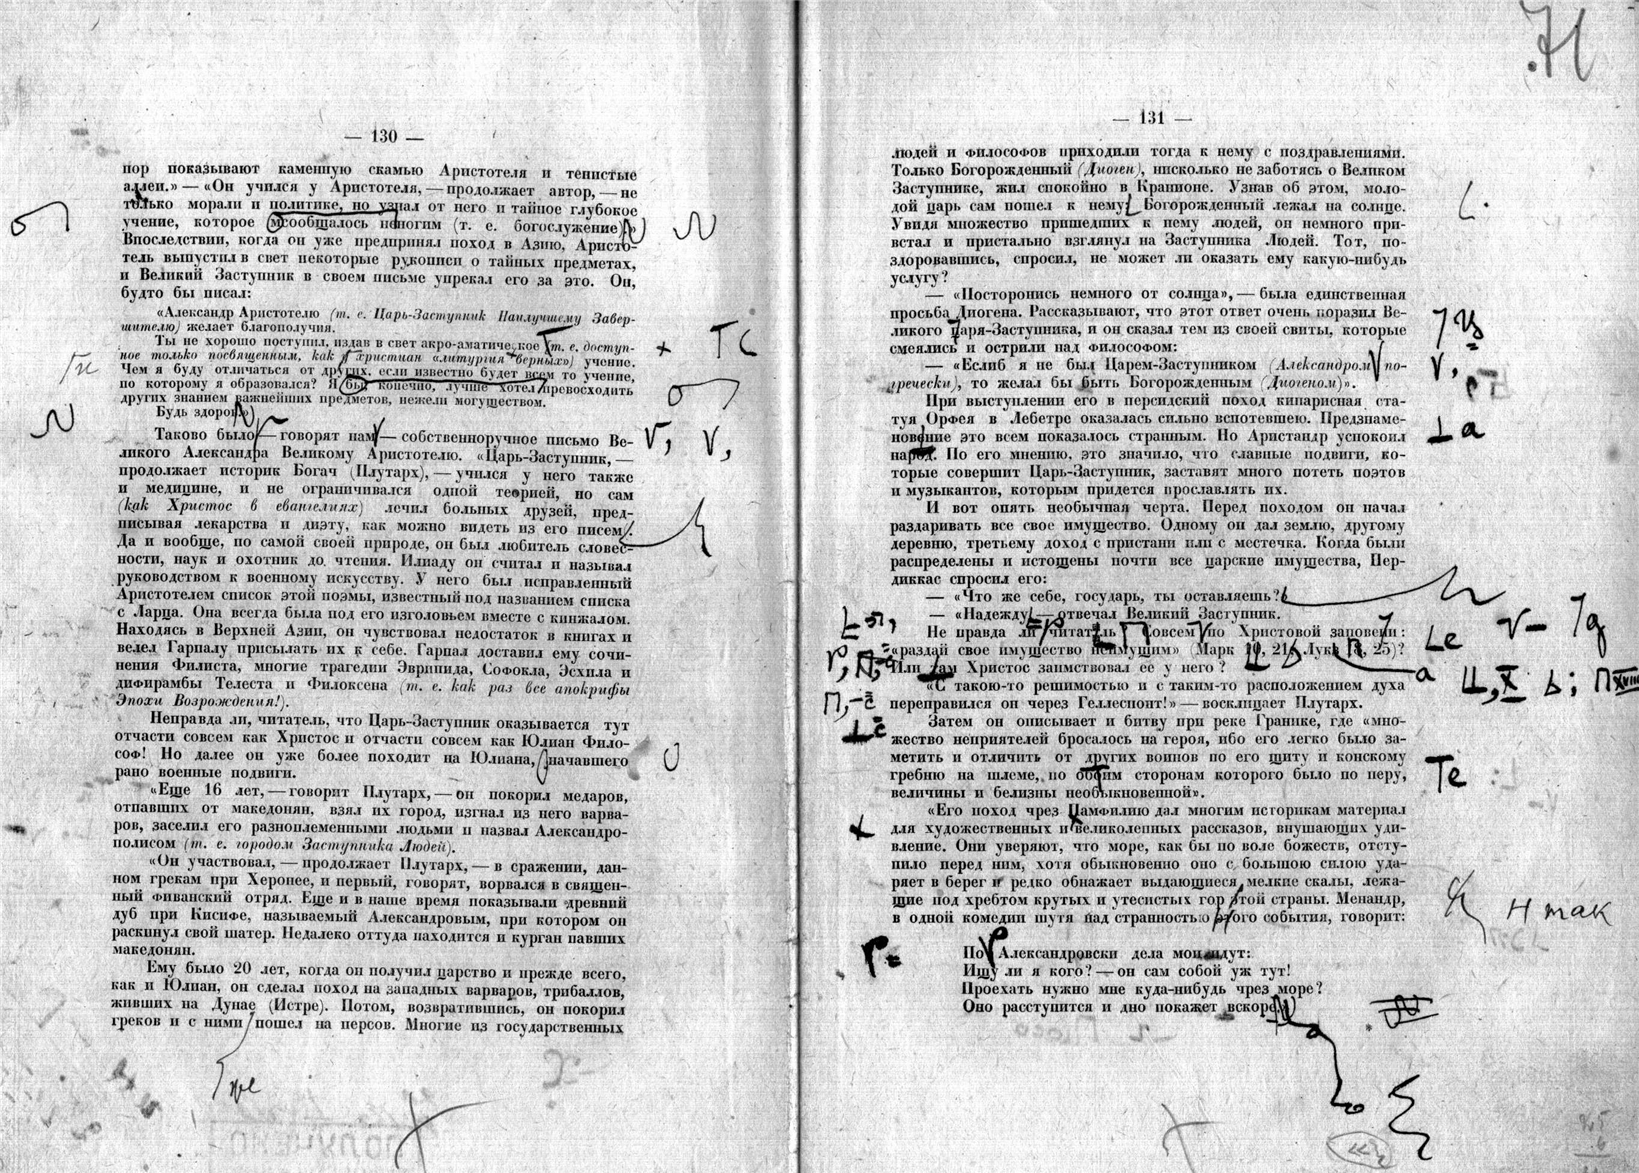 71
— 130 —
пор показывают каменную скамью Аристотеля и тенистые
аллеи.» — «Он учился у Аристотеля, — продолжает автор, — не
только морали и политике, но узнал от него и тайное глубокое
учение, которое сообщалось немногим (т. е. богослужение)»
Впоследствии, когда он уже предпринял поход в Азию, Аристо-
тель выпустил в свет некоторые рукописи о тайных предметах,
и Великий Заступник в своем письме упрекал его за это. Он,
будто бы писал:
«Александр Аристотелю (т. е. Царь-Заступник Наилучшему Завер-
шителю) желает благополучия.
Ты не хорошо поступил, издав в свет акро-аматическое т. е. доступ-
ное только посвященным, как у христиан «литургия верных») учение.
Чем я буду отличаться от других, если известно будет всем то учение,
по которому я образовался? Я бы, конечно, лучше хотел превосходить
других знанием важнейших предметов, нежели могуществом.
Будь здоров»
Таково было — говорят нам — собственноручное письмо Ве-
ликого Александра Великому Аристотелю. «Царь-Заступник, —
продолжает историк Богач (Плутарх), — учился у него также
и медицине, и не ограничивался одной теорией, но сам
(как Христос в евангелиях) лечил больных друзей, пред-
писывая лекарства и диэту, как можно видеть из его писем.
Да и вообще, по самой своей природе, он был любитель словес-
ности, наук и охотник до чтения. Илиаду он считал и называл
руководством к военному искусству. У него был исправленный
Аристотелем список этой поэмы, известный под названием списка
с Ларца. Она всегда была под его изголовьем вместе с кинжалом.
Находясь в Верхней Азии, он чувствовал недостаток в книгах и
велел Гарпалу присылать их к себе. Гарпал доставил ему сочи-
нения Филиста, многие трагедии Эврипида, Софокла, Эсхила и
дифирамбы Телеста и Филоксена (т. е. как раз все апокрифы
Эпохи Возрождения!).
Неправда ли, читатель, что Царь-Заступник оказывается тут
отчасти совсем как Христос и отчасти совсем как Юлиан Фило-
соф! Но далее он уже более походит на Юлиана, начавшего
рано военные подвиги.
«Еще 16 лет, — говорит Плутарх, — он покорил медаров,
отпавших от македонян, взял их город, изгнал из него варва-
ров, заселил его разноплеменными людьми и назвал Александро-
полисом (т. е. городом Заступника Людей).
«Он участвовал, — продолжает Плутарх, — в сражении, дан-
ном грекам при Херонее, и первый, говорят, ворвался в священ-
ный фиванский отряд. Еще и в наше время показывали древний
дуб при Кисифе, называемый Александровым, при котором он
раскинул свой шатер. Недалеко оттуда находится и курган павших
македонян.
Ему было 20 лет, когда он получил царство и прежде всего,
как и Юлиан, он сделал поход на западных варваров, трибаллов,
живших на Дунае (Истре). Потом, возвратившись, он покорил
греков и с ними пошел на персов. Многие из государственных
— 131 —
людей и философов приходили тогда к нему с поздравлениями.
Только Богорожденный (Диоген), нисколько не заботясь о Великом
Заступнике, жил спокойно в Крапионе. Узнав об этом, моло-
дой царь сам пошел к нему. Богорожденный лежал на солнце.
Увидя множество пришедших к нему людей, он немного при-
встал и пристально взглянул на Заступника Людей. Тот, по-
здоровавшись, спросил, не может ли оказать ему какую-нибудь
услугу?
— «Посторонись немного от солнца», — была единственная
просьба Диогена. Рассказывают, что этот ответ очень поразил Ве-
ликого Царя-Заступника, и он сказал тем из своей свиты, которые
смеялись и острили над философом:
— «Еслиб я не был Царем-Заступником (Александром по-
гречески), то желал бы быть Богорожденным (Диогеном)».
При выступлении его в персидский поход кипарисная ста-
туя Орфея в Лебетре оказалась сильно вспотевшею. Предзнаме-
нование это всем показалось странным. Но Аристандр успокоил
народ. По его мнению, это значило, что славные подвиги, ко-
торые совершит Царь-Заступник, заставят много потеть поэтов
и музыкантов, которым придется прославлять их.
И вот опять необычная черта. Перед походом он начал
раздаривать все свое имущество. Одному он дал землю, другому
деревню, третьему доход с пристани или с местечка. Когда были
распределены и истощены почти все царские имущества, Пер-
диккас спросил его:
— «Что же себе, государь, ты оставляешь?
— «Надежду — отвечал Великий Заступник.
Не правда ли читатель Совсем по Христовой заповеди:
«раздай свое имущество неимущим» (Марк 10, 21, Лука 18, 25)?
Или сам Христос заимствовал ее у него?
«С такою-то решимостью и с таким-то расположением духа
переправился он через Геллеспонт!» — восклицает Плутарх.
Затем он описывает и битву при реке Гранике, где «мно-
жество неприятелей бросалось на героя, ибо его легко было за-
метить и отличить от других воинов по его щиту и конскому
гребню на шлеме, по обеим сторонам которого было по перу,
величины и белизны необыкновенной».
«Его поход чрез Памфилию дал многим историкам материал
для художественных и великолепных рассказов, внушающих уди-
вление. Они уверяют, что море, как бы по воле божеств, отсту-
пило перед ним, хотя обыкновенно оно с большою силою уда-
ряет в берег и редко обнажает выдающиеся мелкие скалы, лежа-
щие под хребтом крутых и утесистых гор этой страны. Менандр,
в одной комедии шутя над странностью этого события, говорит:
По Александровски дела мои идут:
Ищу ли я кого? — он сам собой уж тут!
Проехать нужно мне куда-нибудь чрез море?
Оно расступится и дно покажет вскоре